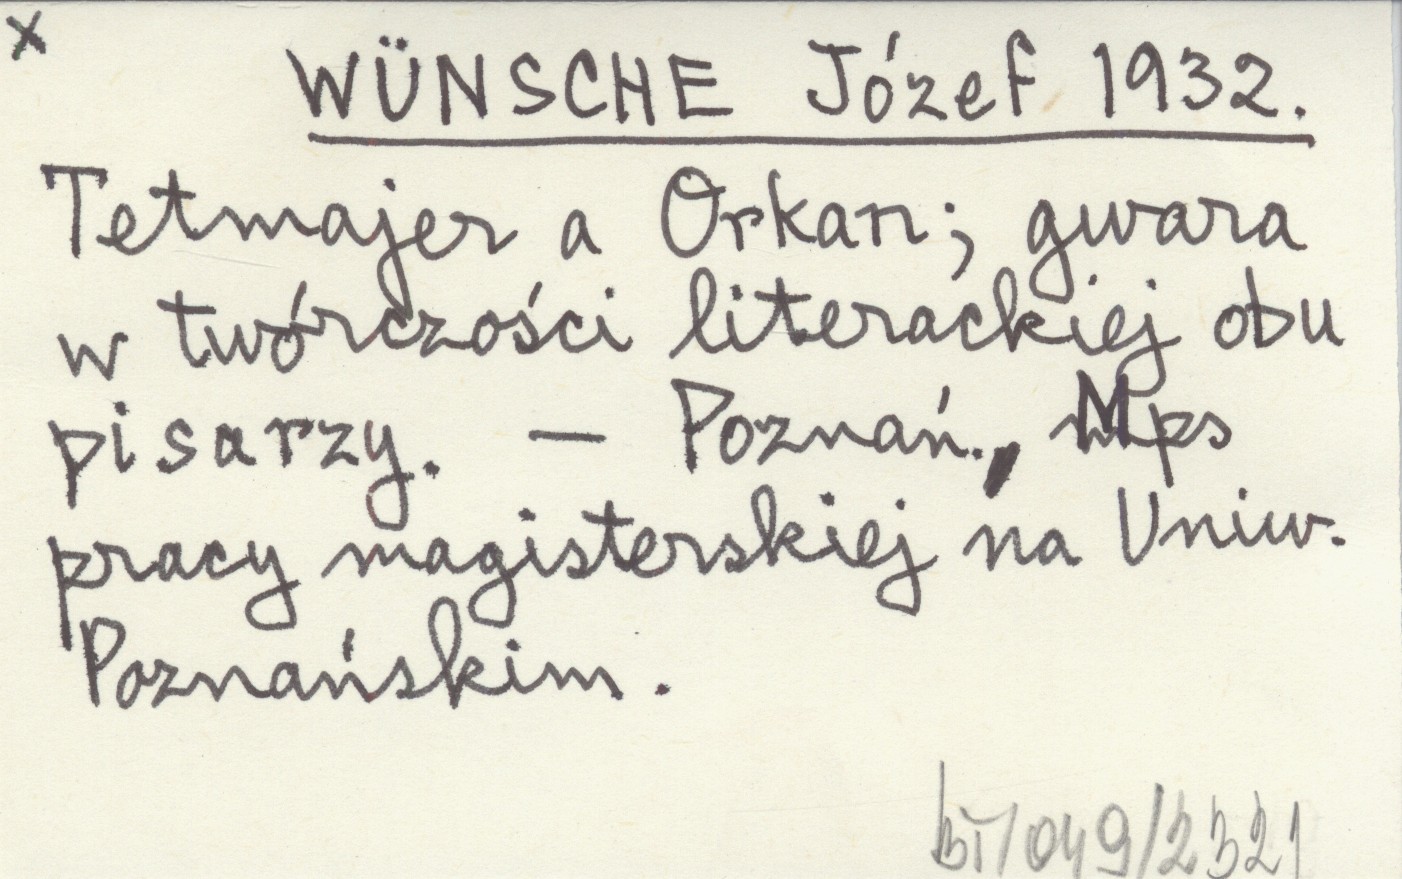 x
WÜNSCHE Józef 1932.
Tetmajer a Orkan; gwara
w twórczości literackiej obu
pisarzy. — Poznań., Mps
pracy magisterskiej na Uniw.
Poznańskim.
/049/2321